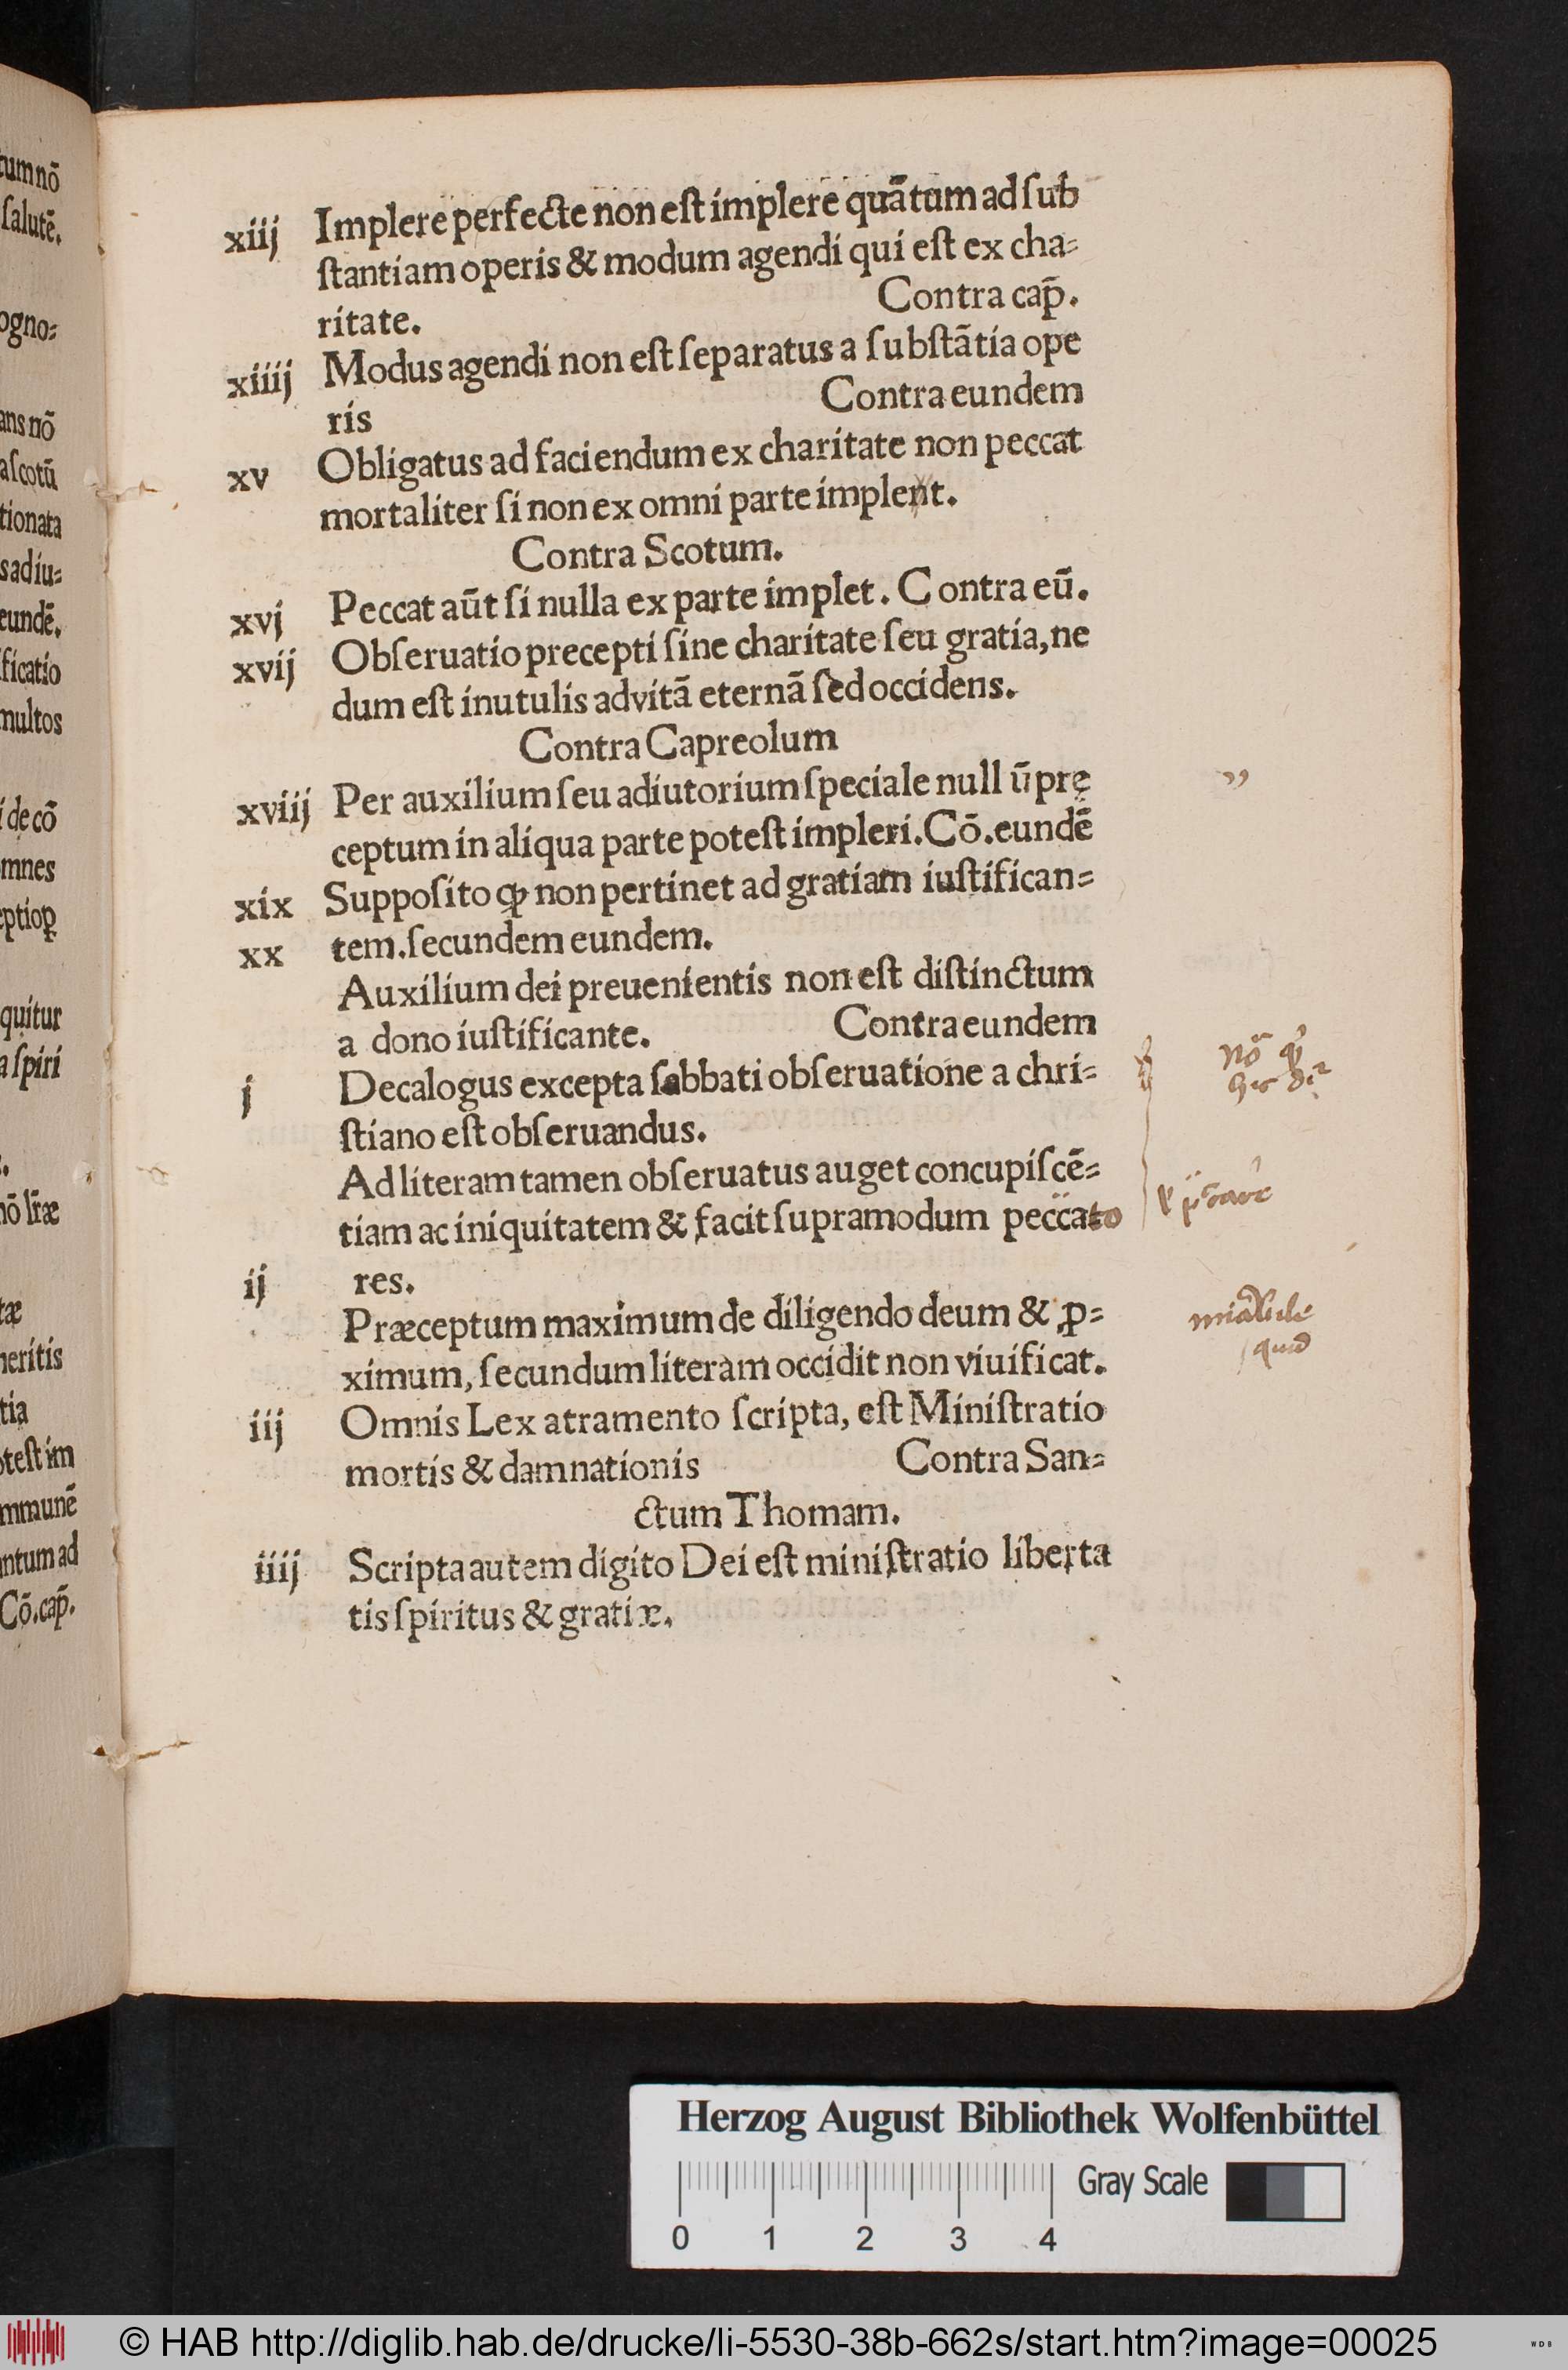 tum nō
ſalutē.
ogno=
ans nō
aſcotū
tionata
s adiu=
eundē.
ificatio
multos
i de cō
mnes
quitur
a ſpiri
nō lr̄æ
tæ
neritis
tia
oteſt im
mmunē
ntum ad
Cō.cap̄.
xiij Implere perfecte non eſt implere quātum ad ſub
ſtantiam operis & modum agendi qui eſt ex cha=
ritate. Contra cap̄.
xiiij Modus agendi non eſt ſeparatus a ſubſtātia ope
ris Contra eundem
xv Obligatus ad faciendum ex charitate non peccat
mortaliter ſi non ex omni parte implent.
Contra Scotum.
xvj Peccat aūt ſi nulla ex parte implet. Contra eū.
xvij Obſeruatio precepti ſine charitate ſeu gratia, ne
dum eſt inutulis ad vitā eternā ſed occidens.
Contra Capreolum
xviij Per auxilium ſeu adiutorium ſpeciale null ū prę
ceptum in aliqua parte poteſt impleri. Cō. eundē
xix Suppoſito ꝙ non pertinet ad gratiam iuſtifican=
xx tem. ſecundem eundem.
Auxilium dei preuenientis non eſt diſtinctum
a dono iuſtificante. Contra eundem
j Decalogus excepta ſabbati obſeruatione a chri=
ſtiano eſt obſeruandus.
Ad literam tamen obſeruatus auget concupiſcē=
tiam ac iniquitatem & facit ſupramodum peccato
ij res.
Præceptum maximum de diligendo deum & ꝓ=
ximum, ſecundum literam occidit non viuificat.
iij Omnis Lex atramento ſcripta, eſt Miniſtratio
mortis & damnationis Contra San=
ctum Thomam.
iiij Scripta autem digito Dei eſt miniſtratio liberta
tis ſpiritus & gratiæ.
Herzog August Bibliothek Wolfenbüttel
Gray Scale
0 1 2 3 4
© HAB http://diglib.hab.de/drucke/li-5530-38b-662s/start.htm?image=00025
WDB